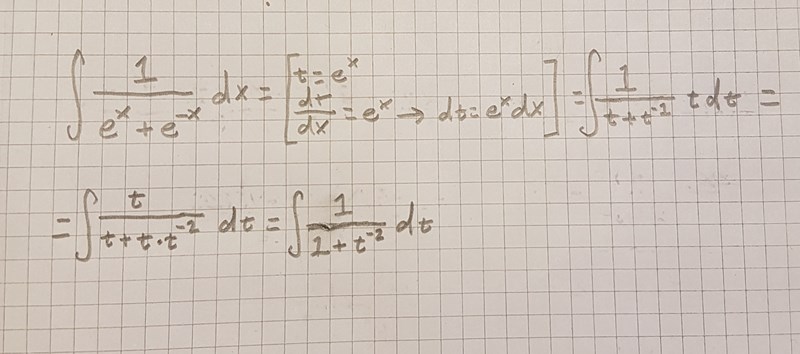 ∫ 1/(eˣ + e⁻ˣ) dx = [t = eˣ, dt/dx = eˣ → dt = eˣdx] = ∫ 1/(t + t⁻¹) t dt =
= ∫ t/(t + t·t⁻¹) dt = ∫ 1/(1 + t⁻¹) dt